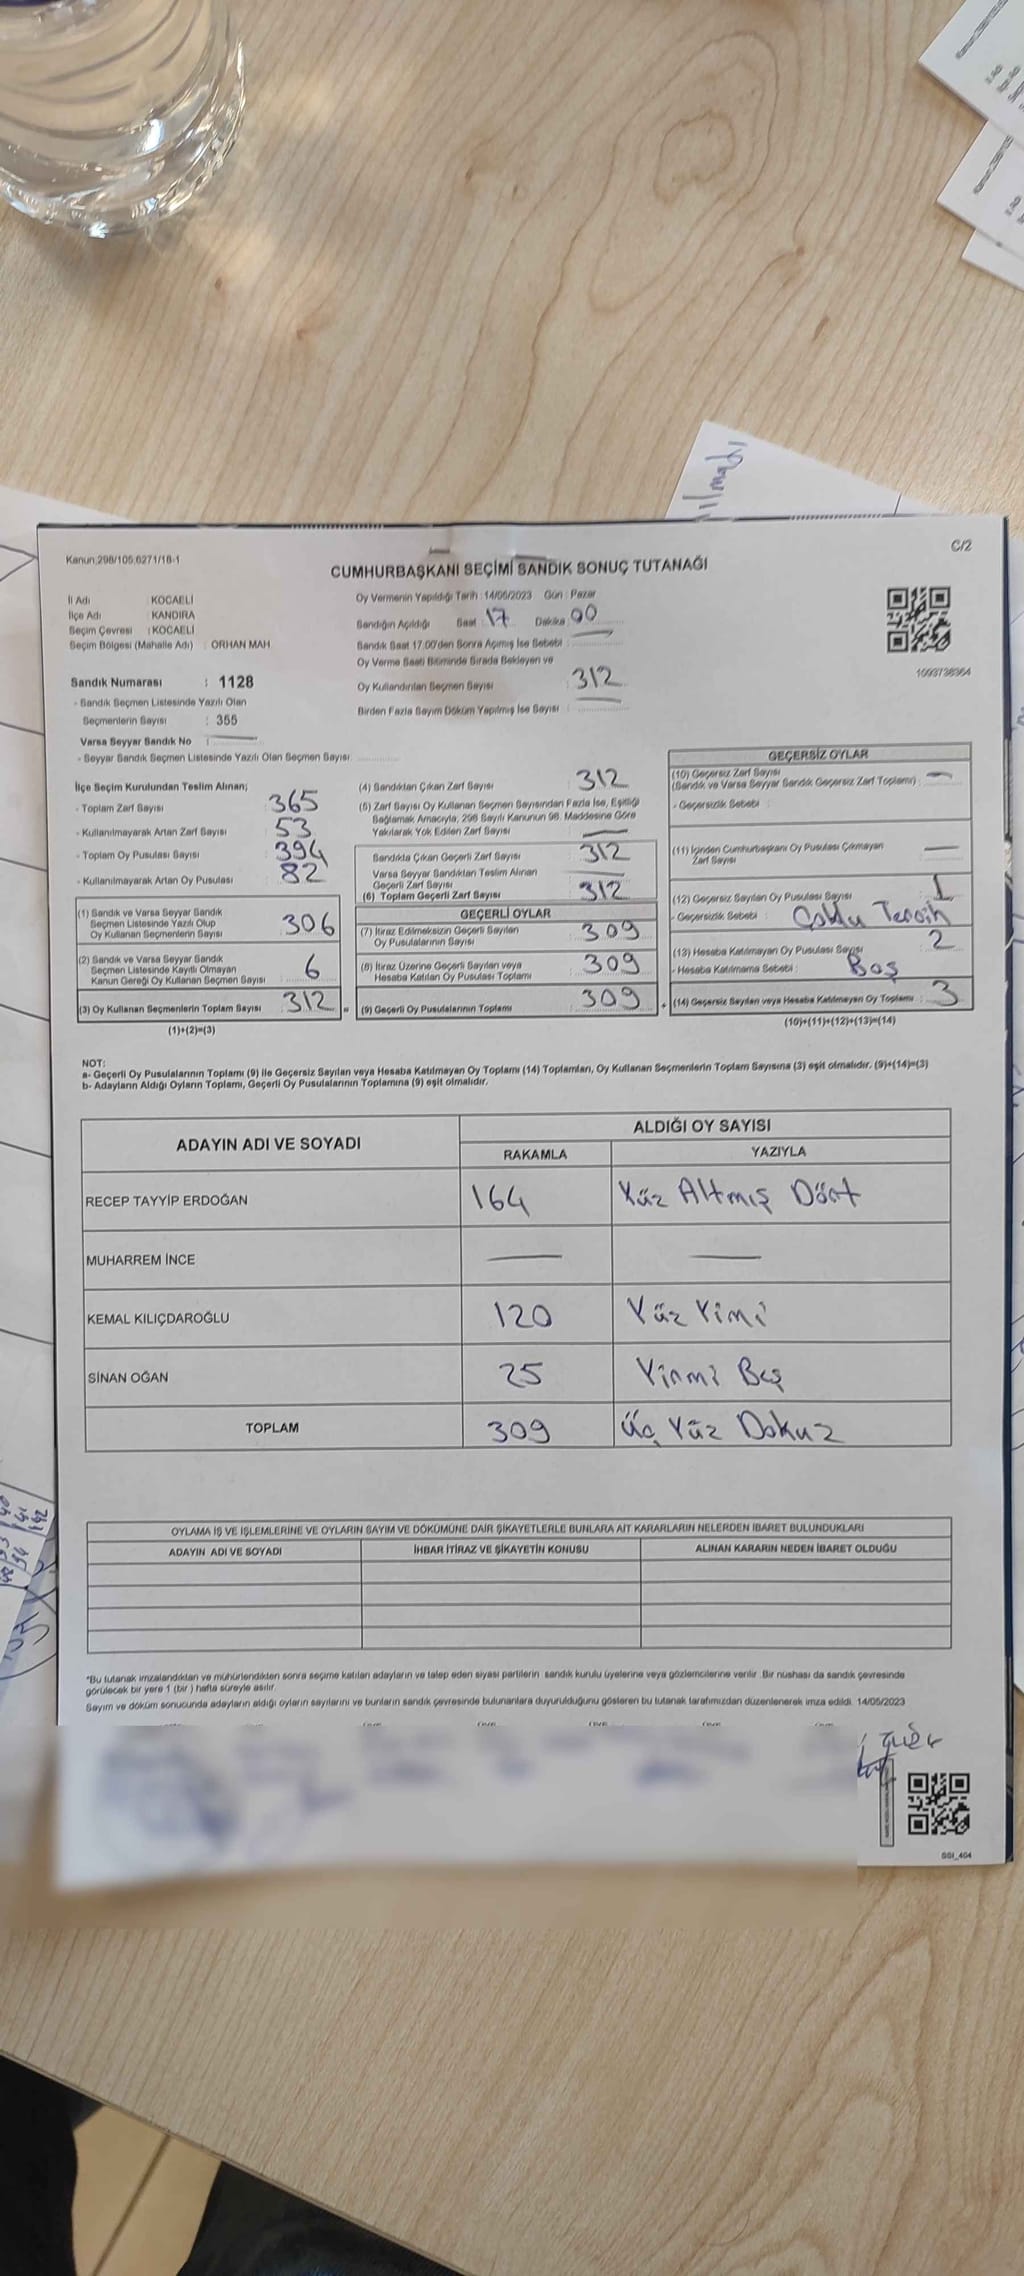 Kanun:298/105,6271/18-1
C/2
CUMHURBAŞKANI SEÇİMİ SANDIK SONUÇ TUTANAĞI
İl Adı : KOCAELİ
İlçe Adı : KANDIRA
Seçim Çevresi : KOCAELİ
Seçim Bölgesi (Mahalle Adı) : ORHAN MAH
Sandık Numarası : 1128
- Sandık Seçmen Listesinde Yazılı Olan
Seçmenlerin Sayısı : 355
Varsa Seyyar Sandık No :
- Seyyar Sandık Seçmen Listesinde Yazılı Olan Seçmen Sayısı :
Oy Vermenin Yapıldığı Tarih : 14/05/2023 Gün : Pazar
Sandığın Açıldığı Saat : 17 Dakika : 00
Sandık Saat 17.00'den Sonra Açılmış İse Sebebi :
Oy Verme Saati Bitiminde Sırada Bekleyen ve
Oy Kullandırılan Seçmen Sayısı : 312
Birden Fazla Sayım Döküm Yapılmış İse Sayısı :
1093738364
İlçe Seçim Kurulundan Teslim Alınan;
- Toplam Zarf Sayısı : 365
- Kullanılmayarak Artan Zarf Sayısı : 53
- Toplam Oy Pusulası Sayısı : 394
- Kullanılmayarak Artan Oy Pusulası : 82
(1) Sandık ve Varsa Seyyar Sandık
Seçmen Listesinde Yazılı Olup
Oy Kullanan Seçmenlerin Sayısı : 306
(2) Sandık ve Varsa Seyyar Sandık
Seçmen Listesinde Kayıtlı Olmayan
Kanun Gereği Oy Kullanan Seçmen Sayısı : 6
(3) Oy Kullanan Seçmenlerin Toplam Sayısı : 312 =
(1)+(2)=(3)
(4) Sandıktan Çıkan Zarf Sayısı : 312
(5) Zarf Sayısı Oy Kullanan Seçmen Sayısından Fazla İse, Eşitliği
Sağlamak Amacıyla, 298 Sayılı Kanunun 98. Maddesine Göre
Yakılarak Yok Edilen Zarf Sayısı :
Sandıkta Çıkan Geçerli Zarf Sayısı : 312
Varsa Seyyar Sandıktan Teslim Alınan
Geçerli Zarf Sayısı :
(6) Toplam Geçerli Zarf Sayısı : 312
GEÇERLİ OYLAR
(7) İtiraz Edilmeksizin Geçerli Sayılan
Oy Pusulalarının Sayısı : 309
(8) İtiraz Üzerine Geçerli Sayılan veya
Hesaba Katılan Oy Pusulası Toplamı : 309
(9) Geçerli Oy Pusulalarının Toplamı : 309 +
GEÇERSİZ OYLAR
(10) Geçersiz Zarf Sayısı
(Sandık ve Varsa Seyyar Sandık Geçersiz Zarf Toplamı) :
- Geçersizlik Sebebi :
(11) İçinden Cumhurbaşkanı Oy Pusulası Çıkmayan
Zarf Sayısı :
(12) Geçersiz Sayılan Oy Pusulası Sayısı : 1
- Geçersizlik Sebebi : Çoklu Tercih
(13) Hesaba Katılmayan Oy Pusulası Sayısı : 2
- Hesaba Katılmama Sebebi : Boş
(14) Geçersiz Sayılan veya Hesaba Katılmayan Oy Toplamı : 3
(10)+(11)+(12)+(13)=(14)
NOT:
a- Geçerli Oy Pusulalarının Toplamı (9) ile Geçersiz Sayılan veya Hesaba Katılmayan Oy Toplamı (14) Toplamları, Oy Kullanan Seçmenlerin Toplam Sayısına (3) eşit olmalıdır. (9)+(14)=(3)
b- Adayların Aldığı Oyların Toplamı, Geçerli Oy Pusulalarının Toplamına (9) eşit olmalıdır.
ADAYIN ADI VE SOYADI
ALDIĞI OY SAYISI
RAKAMLA YAZIYLA
RECEP TAYYİP ERDOĞAN 164 Yüz Altmış Dört
MUHARREM İNCE
KEMAL KILIÇDAROĞLU 120 Yüz Yimi
SİNAN OĞAN 25 Yirmi Beş
TOPLAM 309 Üç Yüz Dokuz
OYLAMA İŞ VE İŞLEMLERİNE VE OYLARIN SAYIM VE DÖKÜMÜNE DAİR ŞİKAYETLERLE BUNLARA AİT KARARLARIN NELERDEN İBARET BULUNDUKLARI
ADAYIN ADI VE SOYADI İHBAR İTİRAZ VE ŞİKAYETİN KONUSU ALINAN KARARIN NEDEN İBARET OLDUĞU
*Bu tutanak imzalandıktan ve mühürlendikten sonra seçime katılan adayların ve talep eden siyasi partilerin sandık kurulu üyelerine veya gözlemcilerine verilir. Bir nüshası da sandık çevresinde
görülecek bir yere 1 (bir ) hafta süreyle asılır.
Sayım ve döküm sonucunda adayların aldığı oyların sayılarını ve bunların sandık çevresinde bulunanlara duyurulduğunu gösteren bu tutanak tarafımızdan düzenlenerek imza edildi. 14/05/2023